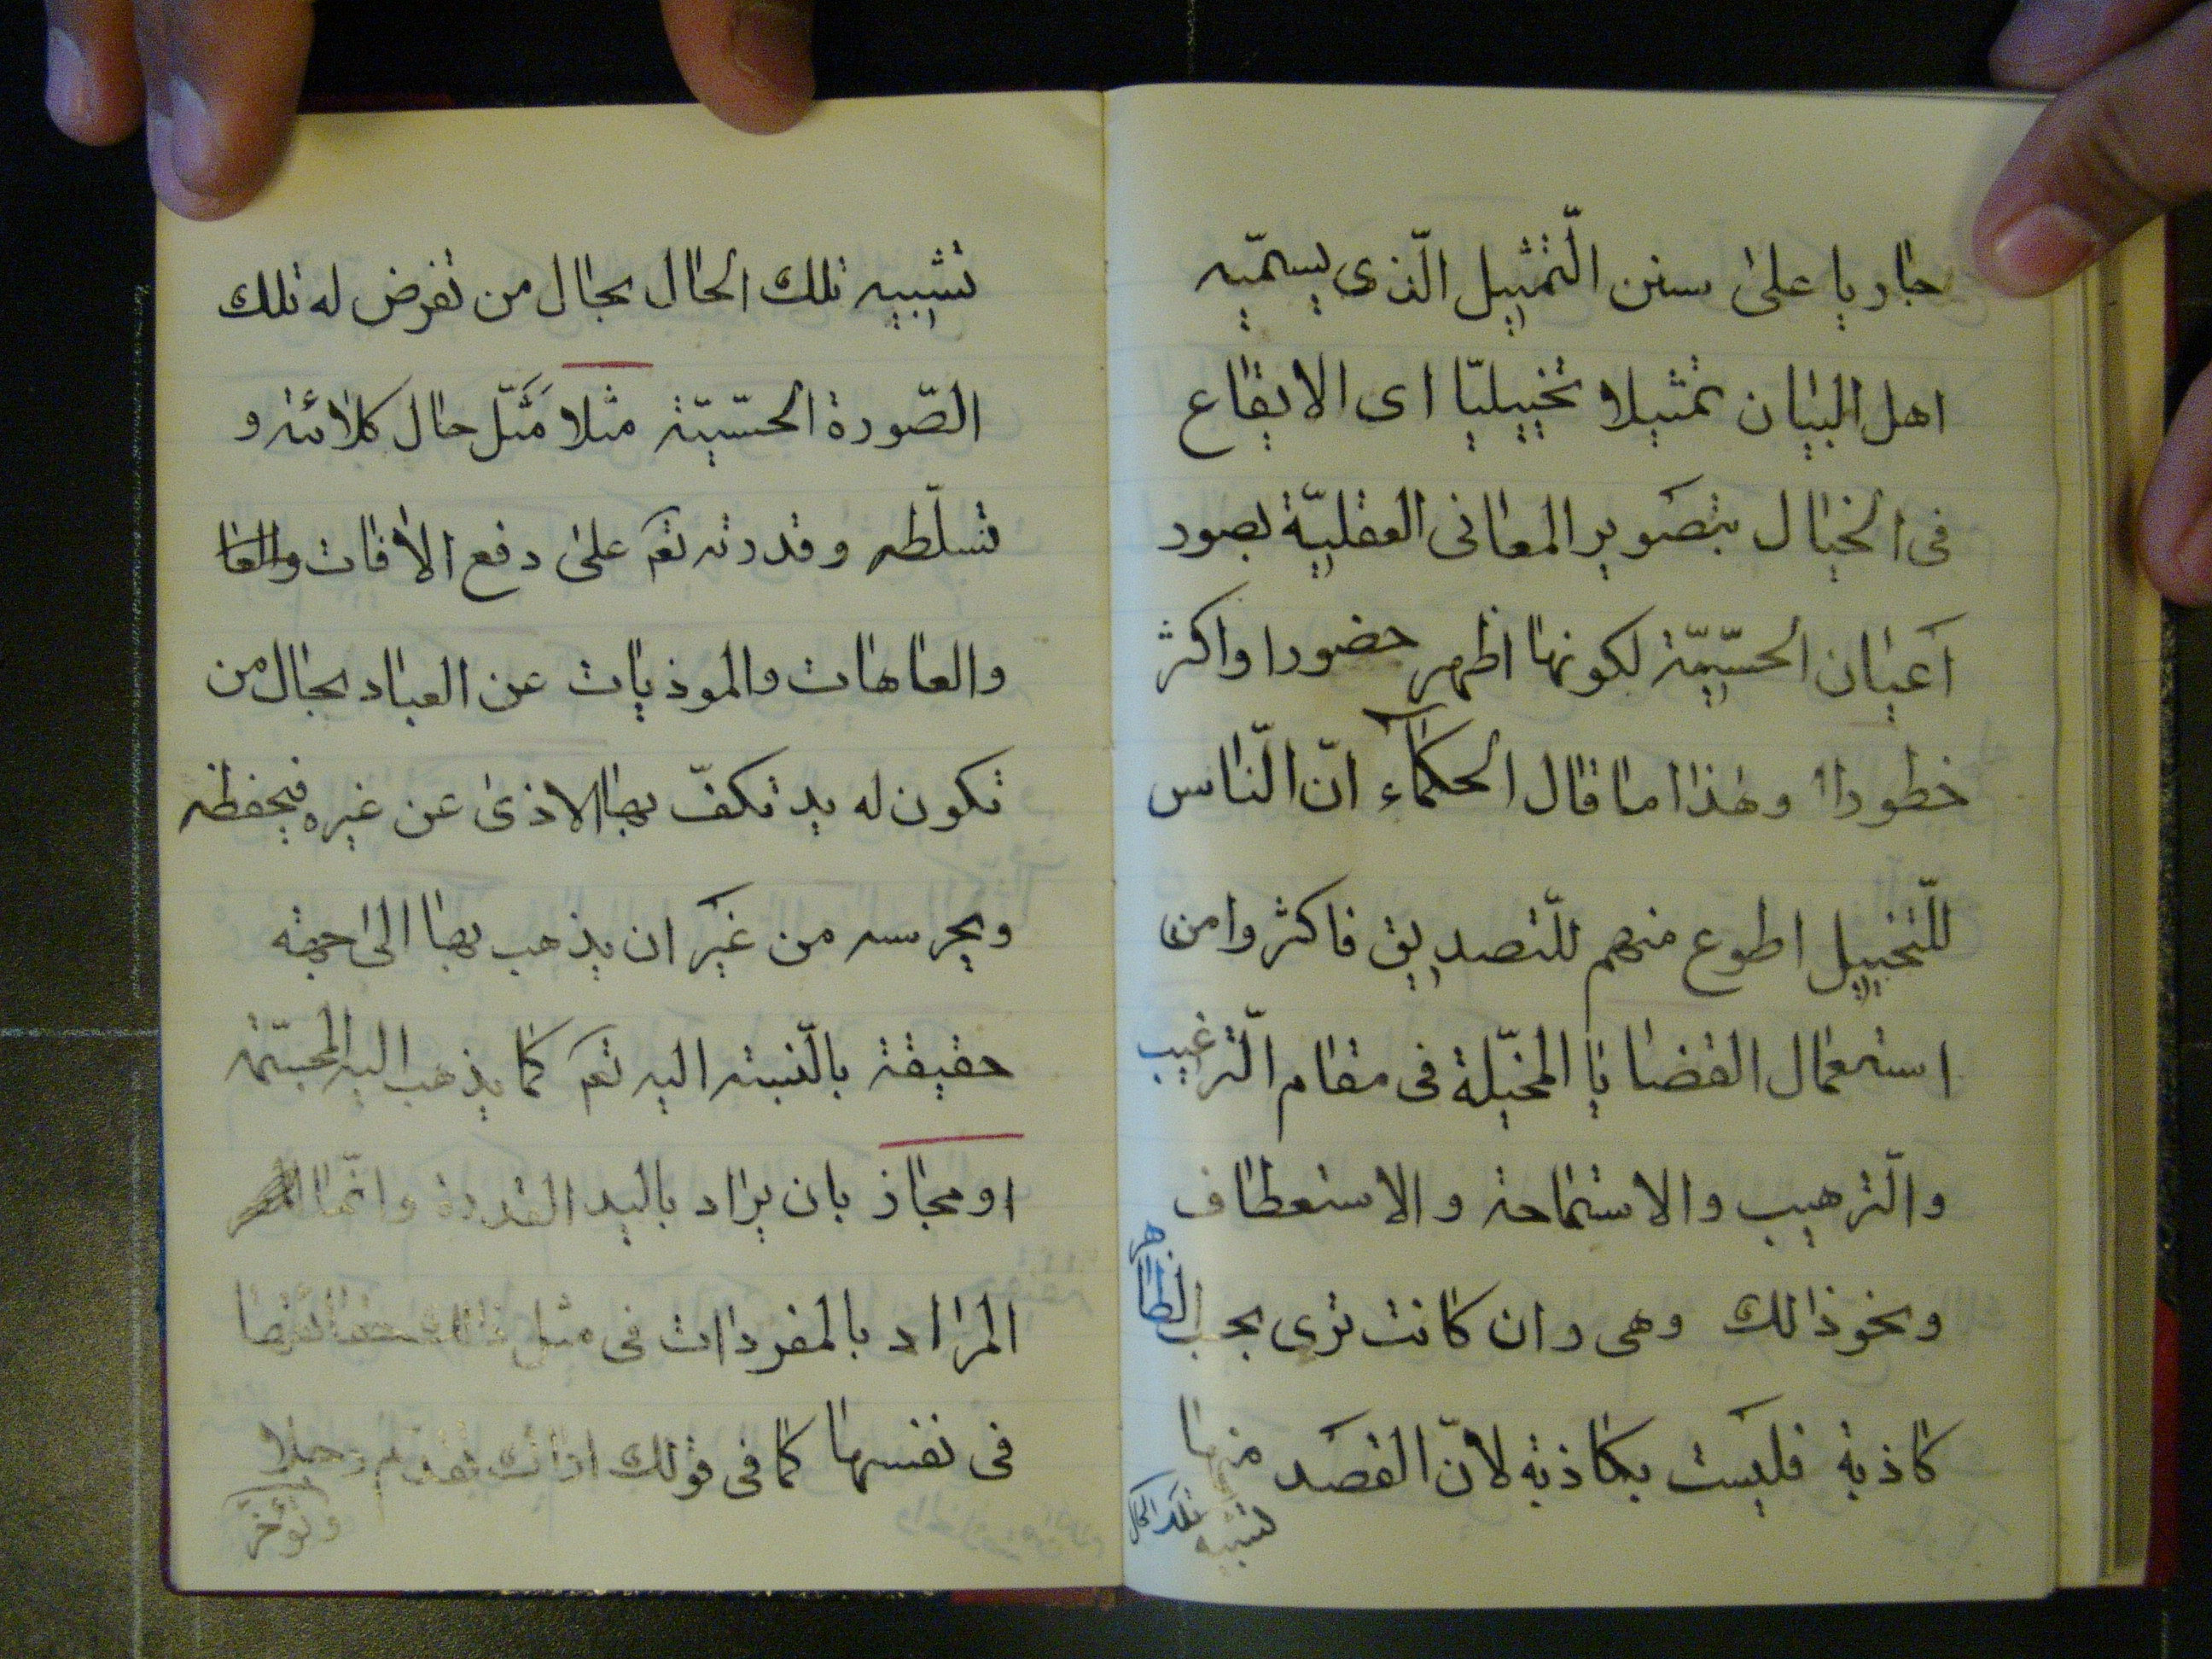 جاريا على سنن التّمثيل الّذى يسمّيه
اهل البيان تمثيلا تخييليّا اى الايقاع
فى الخيال بتصوير المعانى العقليّة بصور
أعيان الحسّيّة لكونها اظهر حضورا واكثر
خطورا وهذا ما قال الحكماء انّ النّاس
للتّخييل اطوع منهم للتّصديق فاكثروا من
استعمال القضايا المخيّلة فى مقام التّرغيب
والتّرهيب والاستماحة والاستعطاف
ونحو ذالك وهى وان كانت ترى بحسب الظاهر
كاذبة فليست بكاذبة لانّ القصد منها
تشبيه تلك الحال
تشبيه تلك الحال بحال من تفرض له تلك
الصّورة الحسّيّة مثلا مَثَّل حال كلائته و
تسلّطه وقدرته تعَ على دفع الافات والعا
والعاهات والموذيات عن العباد بحال من
تكون له يد تكفّ بها الاذى عن غيره فيحفظه
ويحرسه من غير ان يذهب بها الى جهة
حقيقة بالنّسبة اليه تعَ كما يذهب اليه المجسّمة
او مجاز بان يراد باليد القدرة وانّما
المراد بالمفردات فى مثل ذالك
فى نفسها كما فى قولك اراك تقدّم رجلا
وتؤخّر